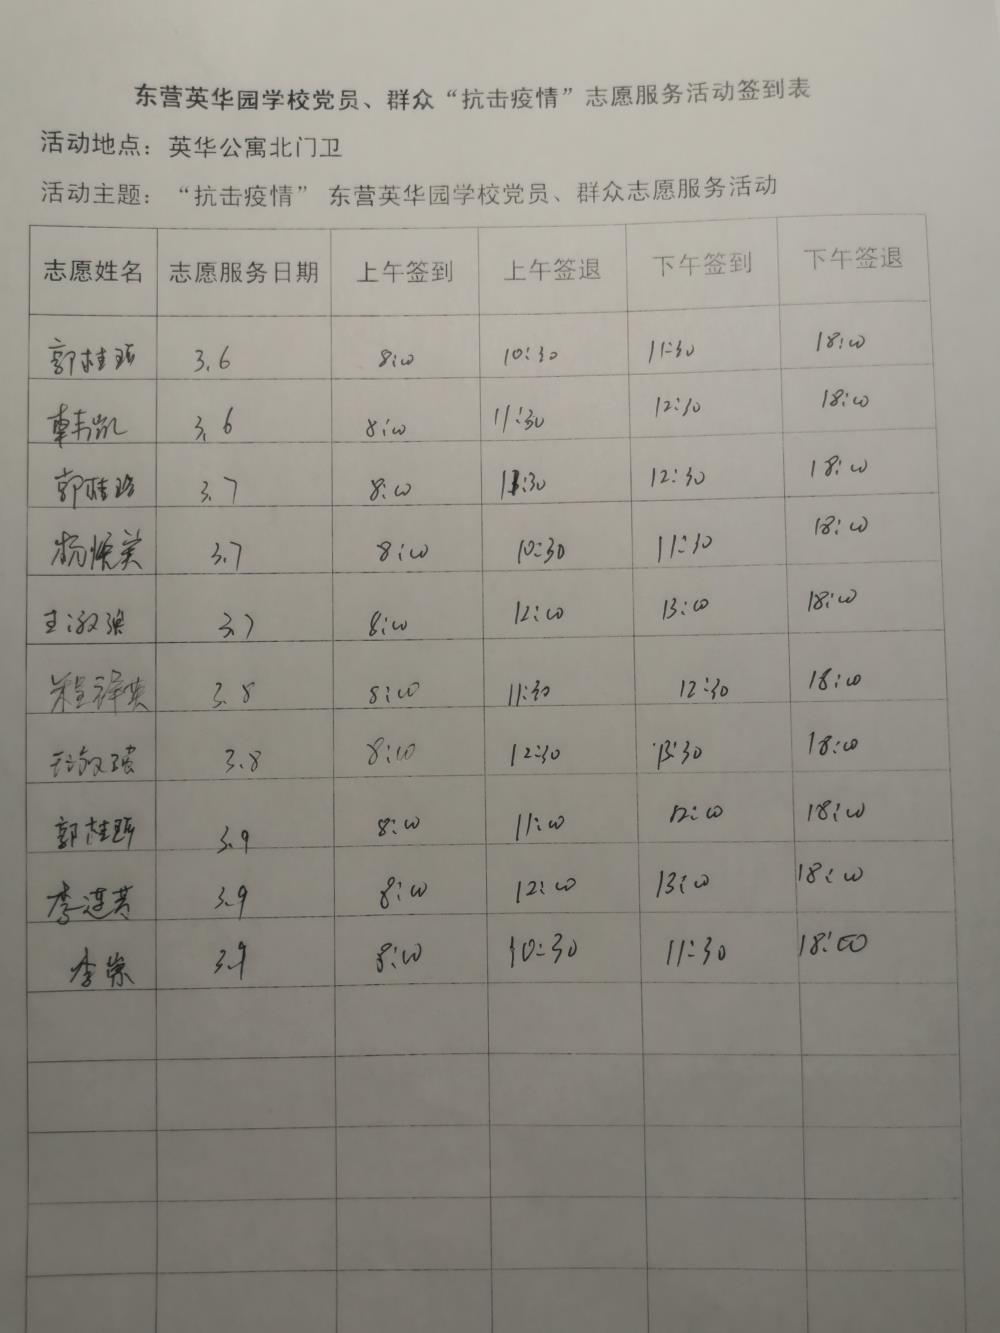 东营英华园学校党员、群众“抗击疫情”志愿服务活动签到表
活动地点：英华公寓北门卫
活动主题：“抗击疫情” 东营英华园学校党员、群众志愿服务活动
志愿姓名 志愿服务日期 上午签到 上午签退 下午签到 下午签退
郭桂 3.6 8:00 10:30 11:30 18:00
韩凯 3.6 8:00 11:30 12:30 18:00
郭桂 3.7 8:00 11:30 12:30 18:00
杨焕美 3.7 8:00 10:30 11:30 18:00
王 3.7 8:00 12:00 13:00 18:00
程祥英 3.8 8:00 11:30 12:30 18:00
3.8 8:00 12:30 13:30 18:00
郭桂 3.9 8:00 11:00 12:00 18:00
李莲英 3.9 8:00 12:00 13:00 18:00
李崇 3.9 8:00 10:30 11:30 18:00